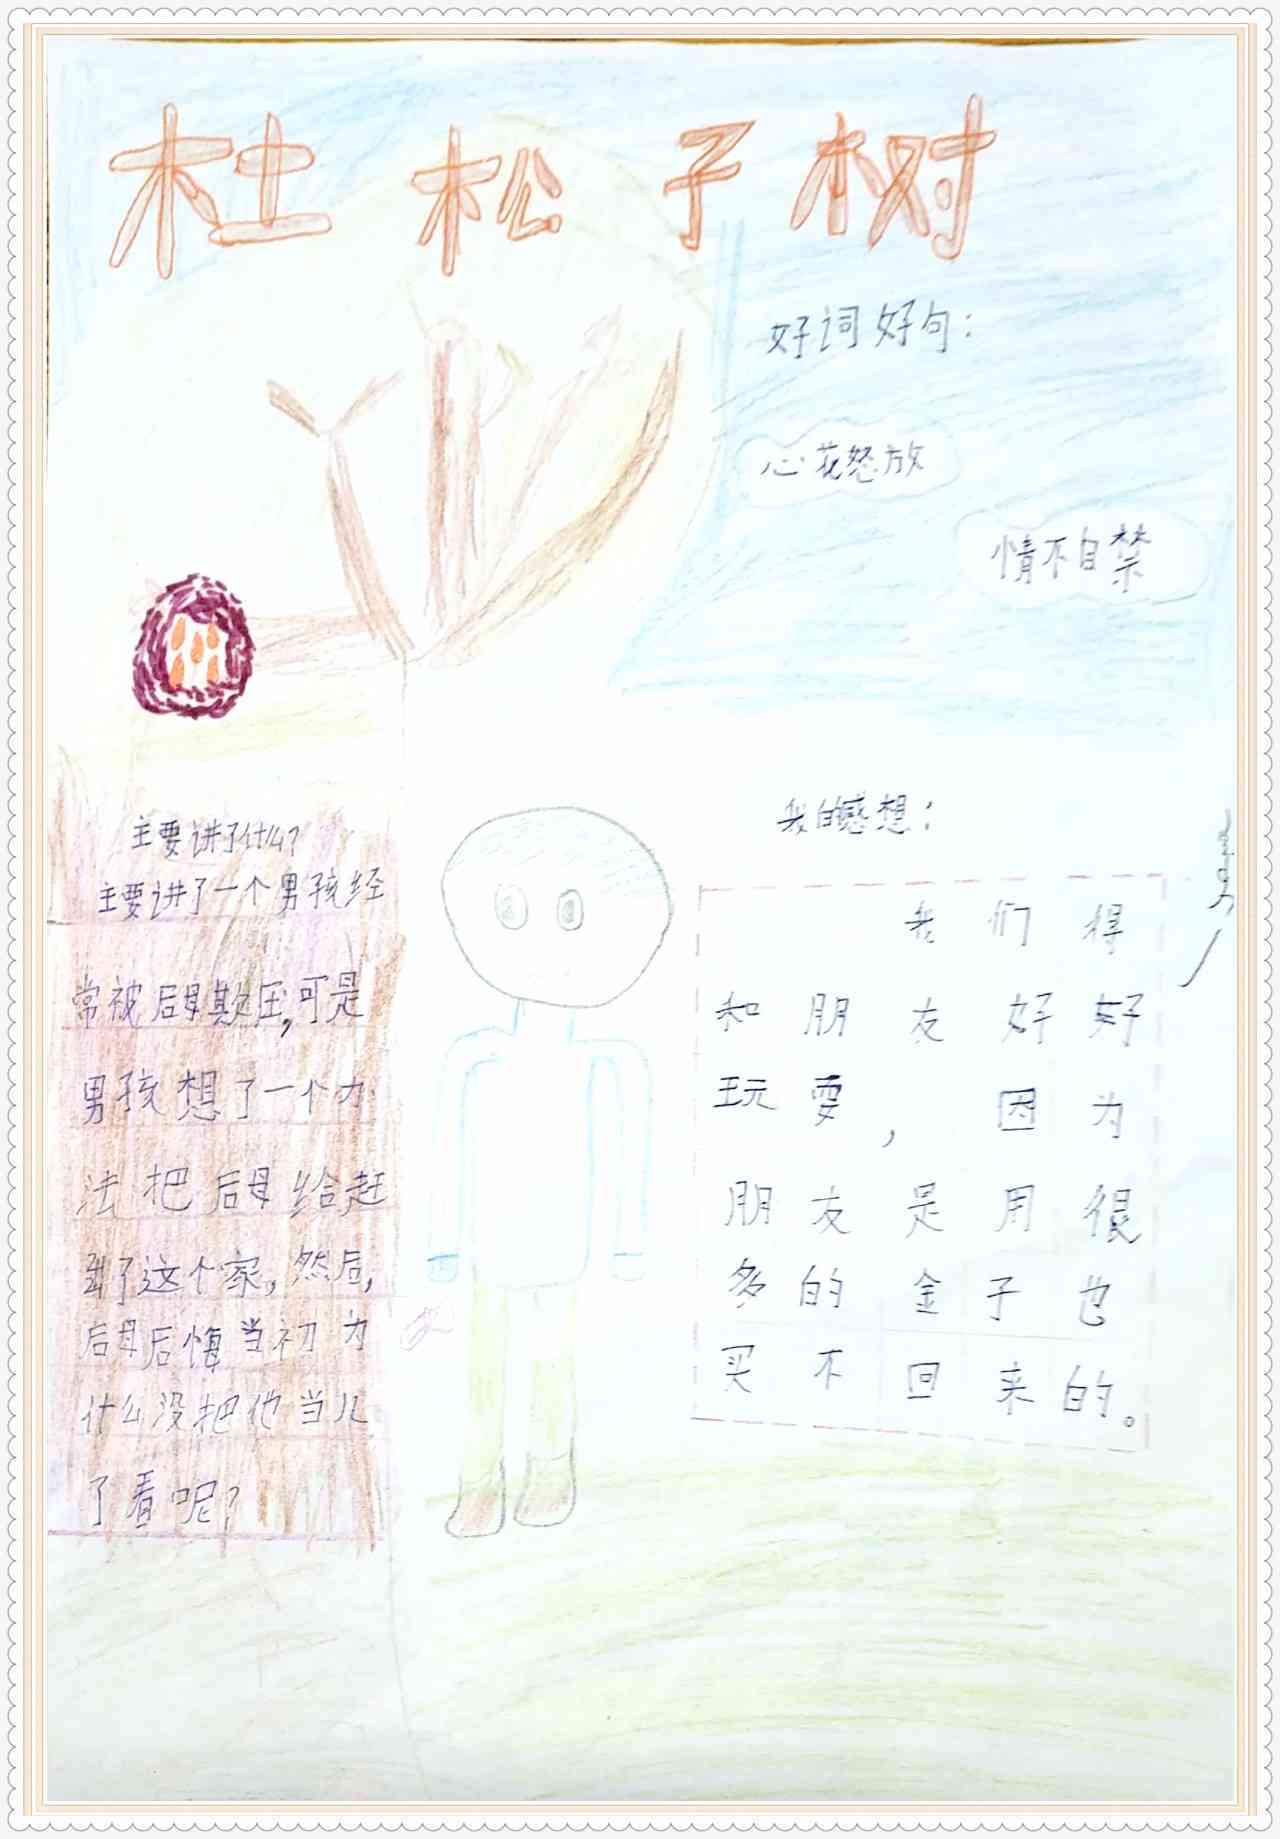 杜松子树
好词好句：
心花怒放
情不自禁
主要讲了什么？
主要讲了一个男孩经
常被后母欺压，可是
男孩想了一个办
法把后母给赶
了这个家。然后，
后母后悔当初为
什么没把他当儿
了看呢？
我的感想：
我们得
和朋友好好
玩耍，因为
朋友是用很
多的金子也
买不回来的。